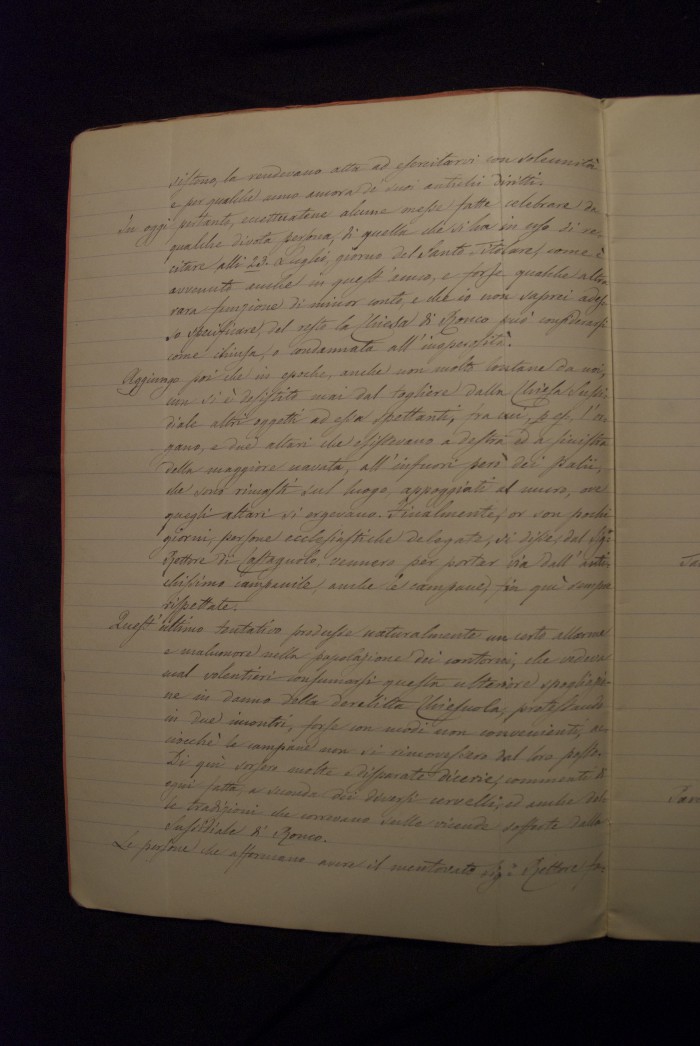 sisteno, la rendevano atta ad esercitarvi con solennità
e per qualche uomo ancora de' suoi antichi diritti.
In oggi pertanto, eccettuatene alcune messe fatte celebrare da
qualche divota persona, di quella che si ha in uso di re-
citare alli 23. Luglio, giorno del Santo Titolare, come è
avvenuto anche in quest'anno, e forse qualche altra
rara funzione di minor conto, e che io non saprei ades-
so specificare, del resto la Chiesa di Ronco può considerarsi
come chiusa, o condannata all'inoperosità.
Aggiungo poi che in epoche, anche non molto lontane da noi,
non si è desistito mai dal togliere dalla Chiesa Sussi-
diale altri oggetti ad essa spettanti, fra cui, p. es. l'or-
gano, e due altari che esistevano a destra ed a sinistra
della maggiore navata, all'infuori però dei palii,
che sono rimasti sul luogo, appoggiati al muro, ove
quegli altari si ergevano. Finalmente, or son pochi
giorni, persone ecclesiastiche delegate, si disse, dal Sig.
Rettore di Castagnolo, vennero per portar via dall'anti-
chissimo campanile, anche le campane, fin quì sempre
rispettate.
Quest'ultimo tentativo produsse naturalmente un certo allarme
e malumore nella popolazione dei contorni, che vedeva
mal volentieri consumarsi questa ulteriore spogliazio-
ne in danno della derelitta Chiesuola, protestando
in due incontri, forse con modi non convenienti, ac-
ciocchè le campane non si rimovessero dal loro posto.
Di qui sorsero molte e disparate dicerie, commenti d'
ogni fatta, a seconda dei diversi cervelli, ed anche del-
le tradizioni che correvano sulle vicende sofferte dalla
Sussidiale di Ronco.
Le persone che affermano avere il mentovato Sig. Rettore